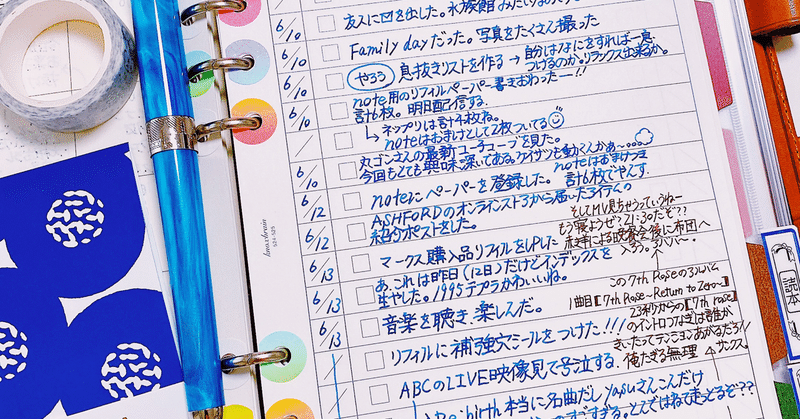 6/10 友スに回を出した。水族館みたいな
6/10 Family dayだった。写真をたくさん撮った
6/10 やろう 息抜きリストを作る → 自分はなにをすれば一息つけるのか。リラックス出来るか。
6/10 note用のリフィルペーパー書きおわったー!!
計6枚。明日配信する。
↳ ネップリは計4枚ね。
noteはおまけとして2枚ついてる
丸ゴンさんの最新ユーチューブを見た。
6/10 今回もとても興味深いである。ケイサツも動くんかぁ〜
6/12 noteにペーパーを登録した。noteはおまけつき 計6枚でやんす。
6/12 ASHFORDのオンラインストアから届いた
紹介ポストをした。
6/13 マークス購入品リフィルをUPした
そしてMV見ちゃってぃうねー
もう寝ようぜ?21:30だぞ??
6/13 あ、これは昨日(12日)だけどインデックスを
生やした。1995テプラかわいいね。
6/13 音楽を聴き、楽しんだ。
この7th Roseのアルバム
1曲目【7th Rose〜Return to Zero〜】
23秒からの【7th rose】
のイントロつなぎは誰が
きいたってテンションあがるだろ!
俺たぎる無理
サンクス。
リフィルに補強穴シールをつけた!!!
ABCのLIVE映像見て号泣する。
Re:birth本当に名曲だし Yasuさんこんだけ
knoxbrain
521-525
読本